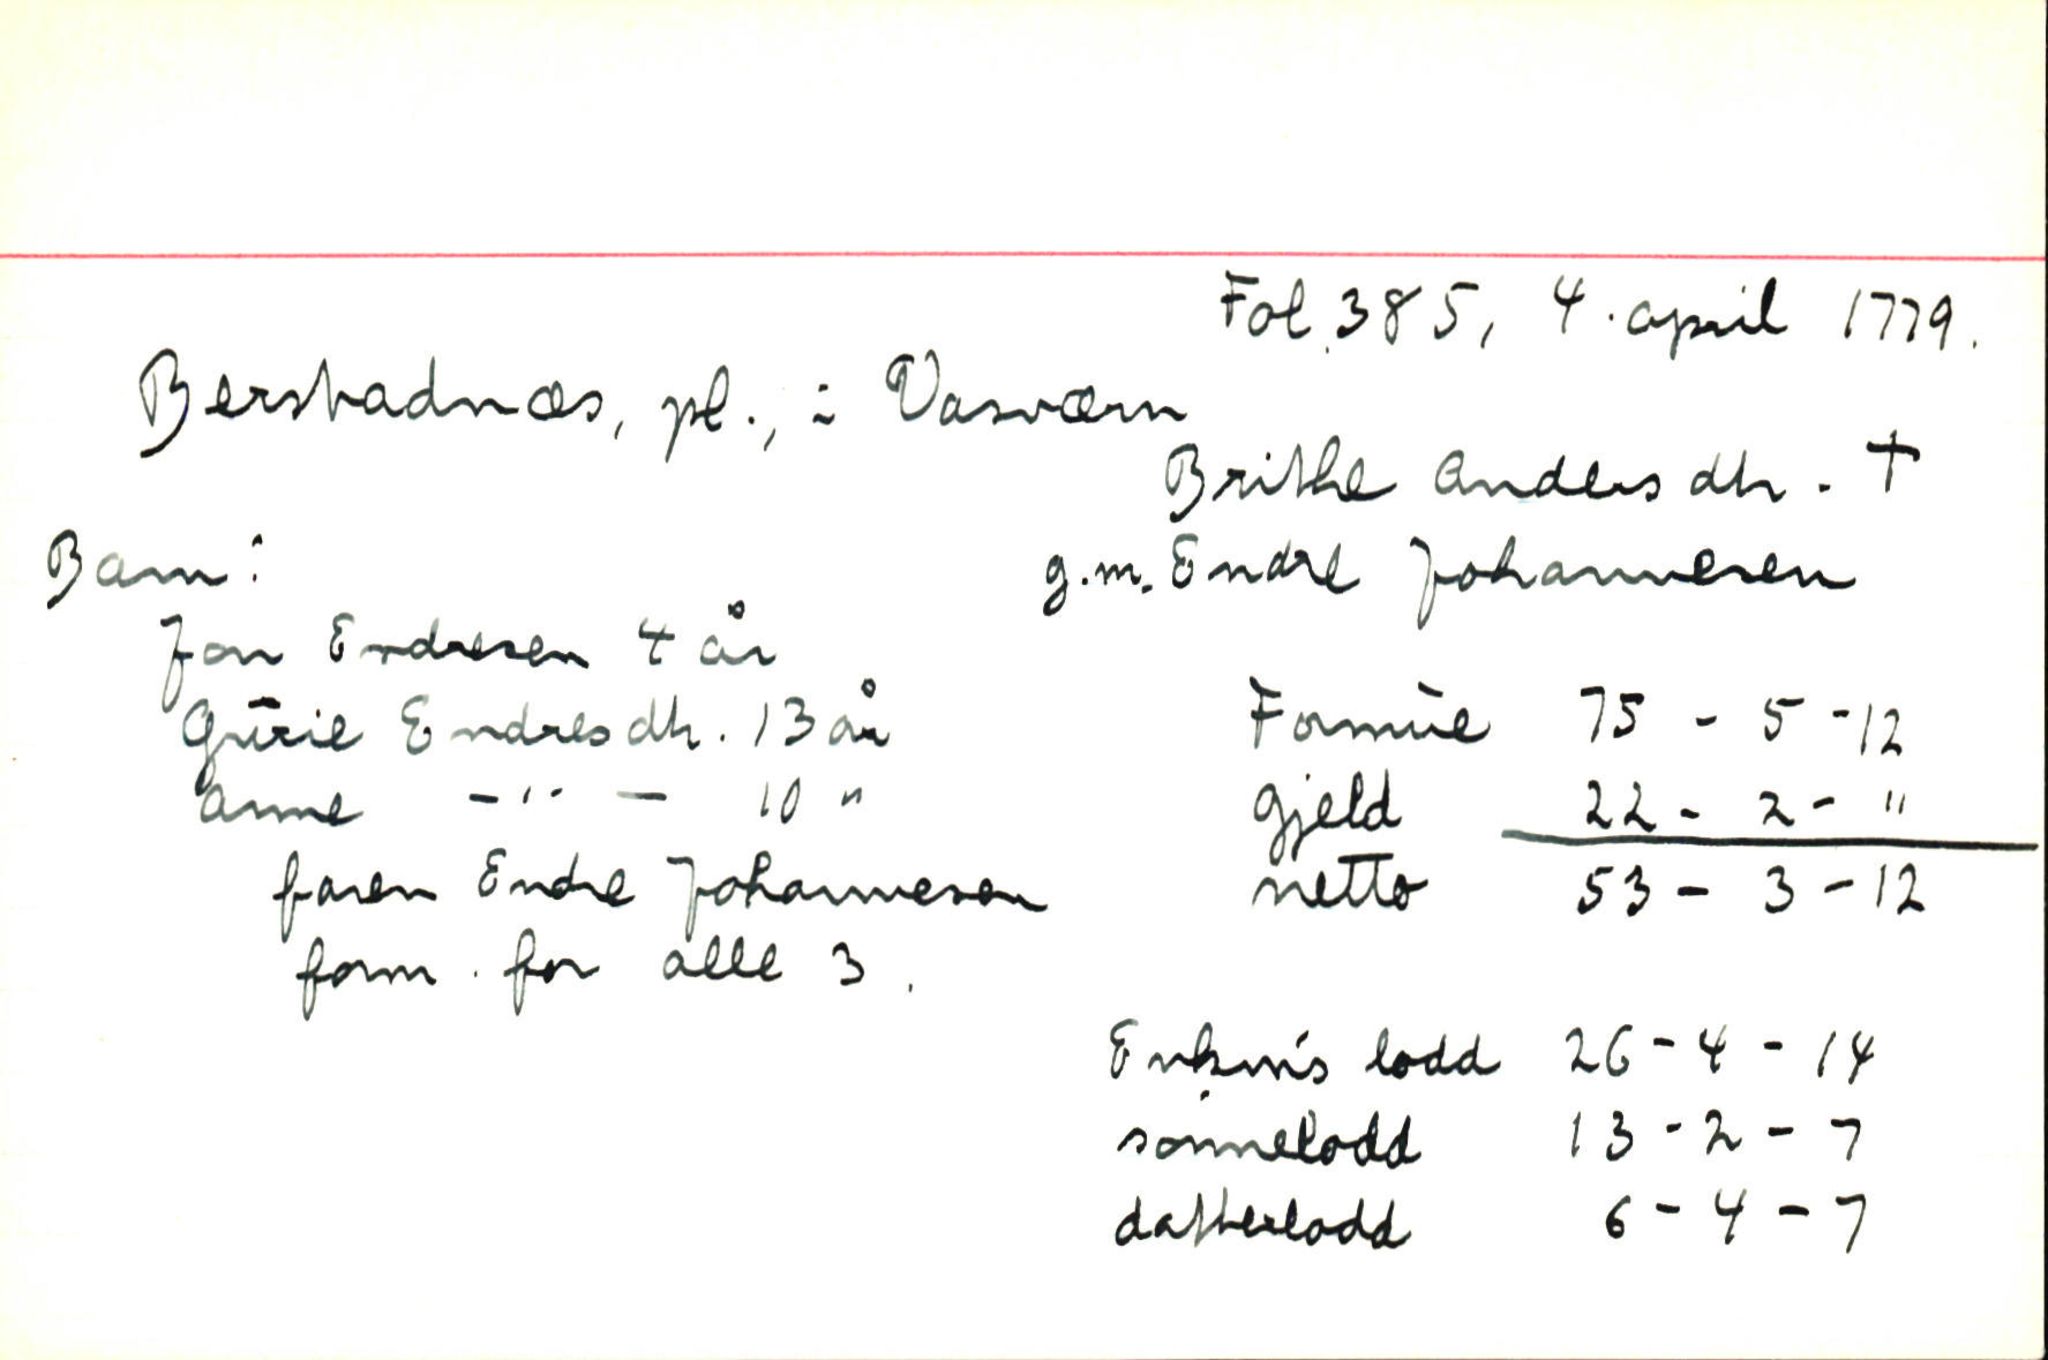 Fol. 385, 4. april 1779.
Berstadnæs, pl., i Vasværn
Brithe Andersdtr. †
g.m. Endre Johannesen
Barn:
Jon Endresen 4 år
Gurie Endresdtr. 13 år
Anne -"- 10 "
faren Endre Johannesen
form. for alle 3.
Formue 75 - 5 - 12
Gjeld 22 - 2 - "
netto 53 - 3 - 12
Enken's lodd 26 - 4 - 14
sønnelodd 13 - 2 - 7
datterlodd 6 - 4 - 7